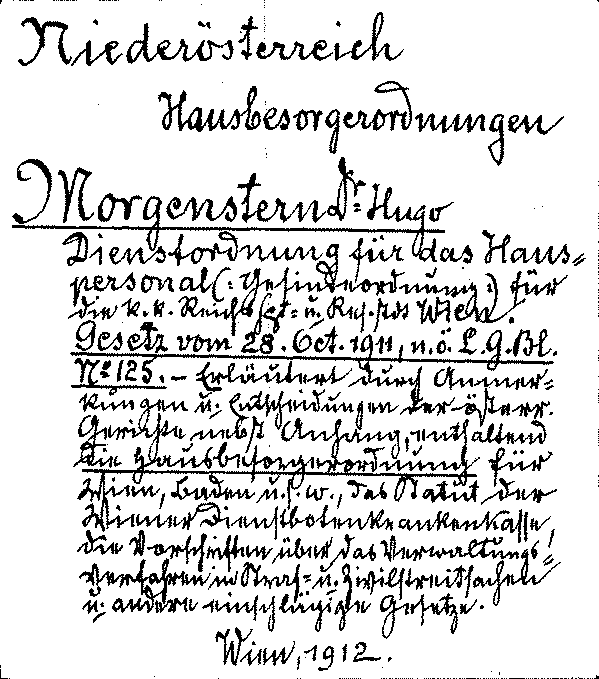 Niederösterreich
Hausbesorgerordnungen
Morgenstern Dr. Hugo
Dienstordnung für das Haus-
personal (: Gesindeordnung :) für
die k. k. Reichshpt- u. Res. stdt Wien.
Gesetz vom 28. Oct. 1911, n. ö. L. G. Bl.
No 125. – Erläutert durch Anmer-
kungen u. Entscheidungen der österr.
Gerichte nebst Anhang, enthaltend
die Hausbesorgerordnung für
Wien, Baden u. s. w., das Statut der
Wiener Dienstbotenkrankenkasse,
die Vorschriften über das Verwaltungs-
verfahren in Straf- u. Zivilstreitsachen
u. andere einschlägige Gesetze.
Wien, 1912.